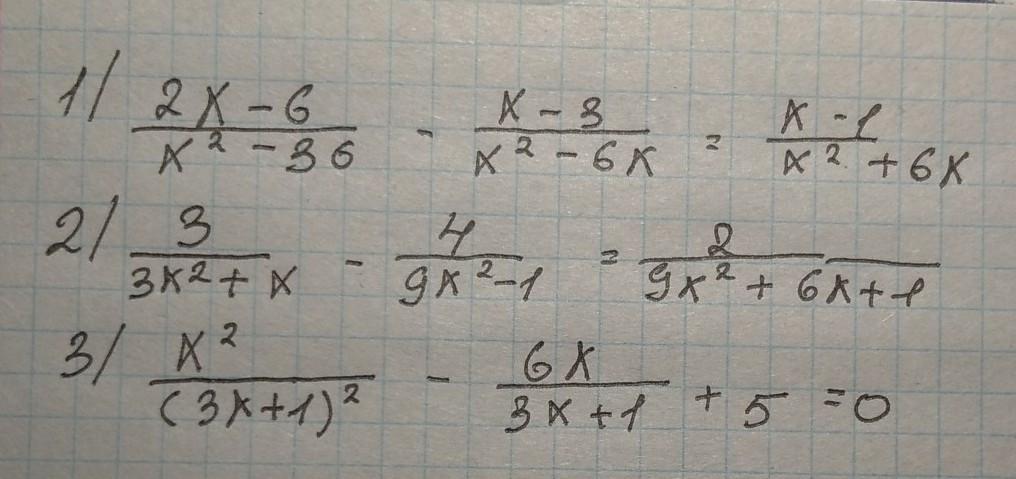 1/ (2x - 6)/(x² - 36) - (x - 3)/(x² - 6x) = (x - 1)/(x² + 6x)
2/ 3/(3x² + x) - 4/(9x² - 1) = 2/(9x² + 6x + 1)
3/ x²/(3x + 1)² - 6x/(3x + 1) + 5 = 0